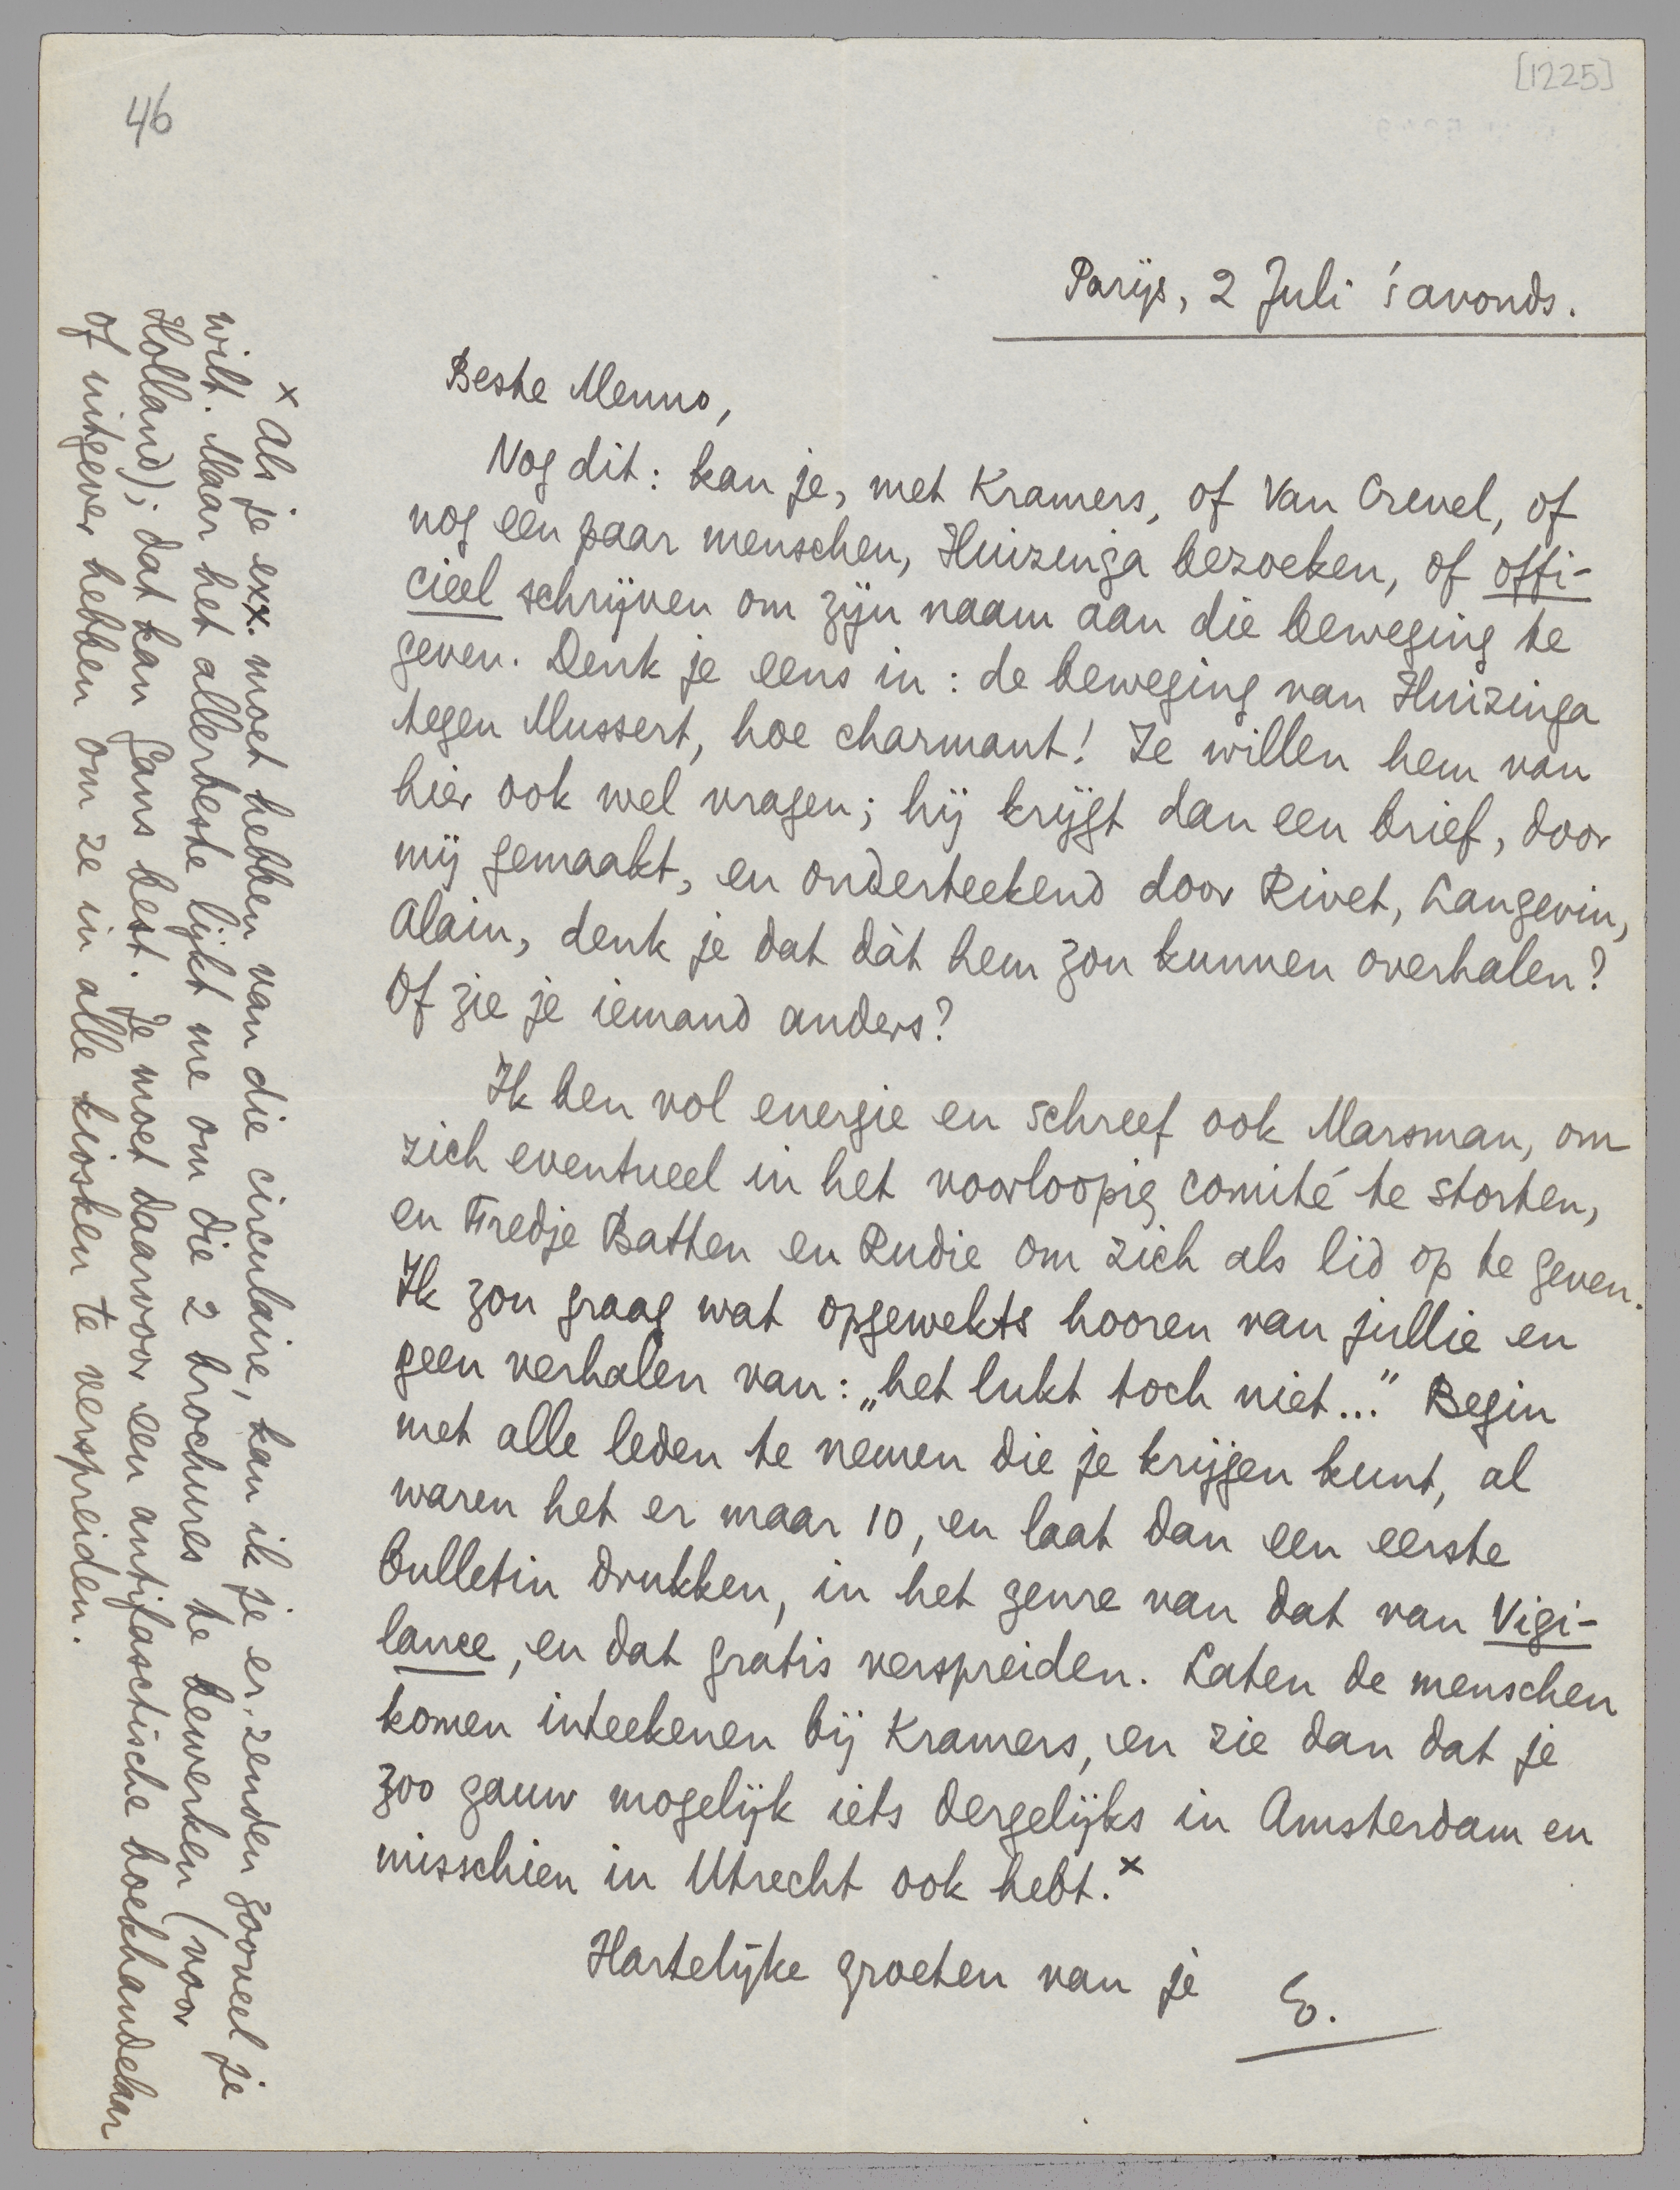 [1225]
46
Parijs, 2 Juli 's avonds.
Beste Menno,
Nog dit: kan je, met Kramers, of Van Crevel, of
nog een paar menschen, Huizinga bezoeken, of offi-
cieel schrijven om zijn naam aan die beweging te
geven. Denk je eens in: de beweging van Huizinga
tegen Mussert, hoe charmant! Ze willen hem van
hier ook wel vragen; hij krijgt dan een brief, door
mij gemaakt, en onderteekend door Rivet, Langevin,
Alain, denk je dat dàt hem zou kunnen overhalen?
Of zie je iemand anders?
Ik ben vol energie en schreef ook Marsman, om
zich eventueel in het voorloopig comité te storten,
en Fredje Batten en Rudie om zich als lid op te geven.
Ik zou graag wat opgewekts hooren van jullie en
geen verhalen van: „het lukt toch niet..." Begin
met alle leden te nemen die je krijgen kunt, al
waren het er maar 10, en laat dan een eerste
bulletin drukken, in het genre van dat van Vigi-
lance, en dat gratis verspreiden. Laten de menschen
komen inteekenen bij Kramers, en zie dan dat je
zoo gauw mogelijk iets dergelijks in Amsterdam en
misschien in Utrecht ook hebt.x
Hartelijke groeten van je E.
x Als je exx. moet hebben van die circulaire, kan ik je er zenden zooveel je
wilt. Maar het allerbeste lijkt me om die 2 brochures te bewerken (voor
Holland); dat kan Gans best. Je moet daarvoor een antifasctische boekhandelaar
of uitgever hebben om ze in alle kiosken te verspreiden.